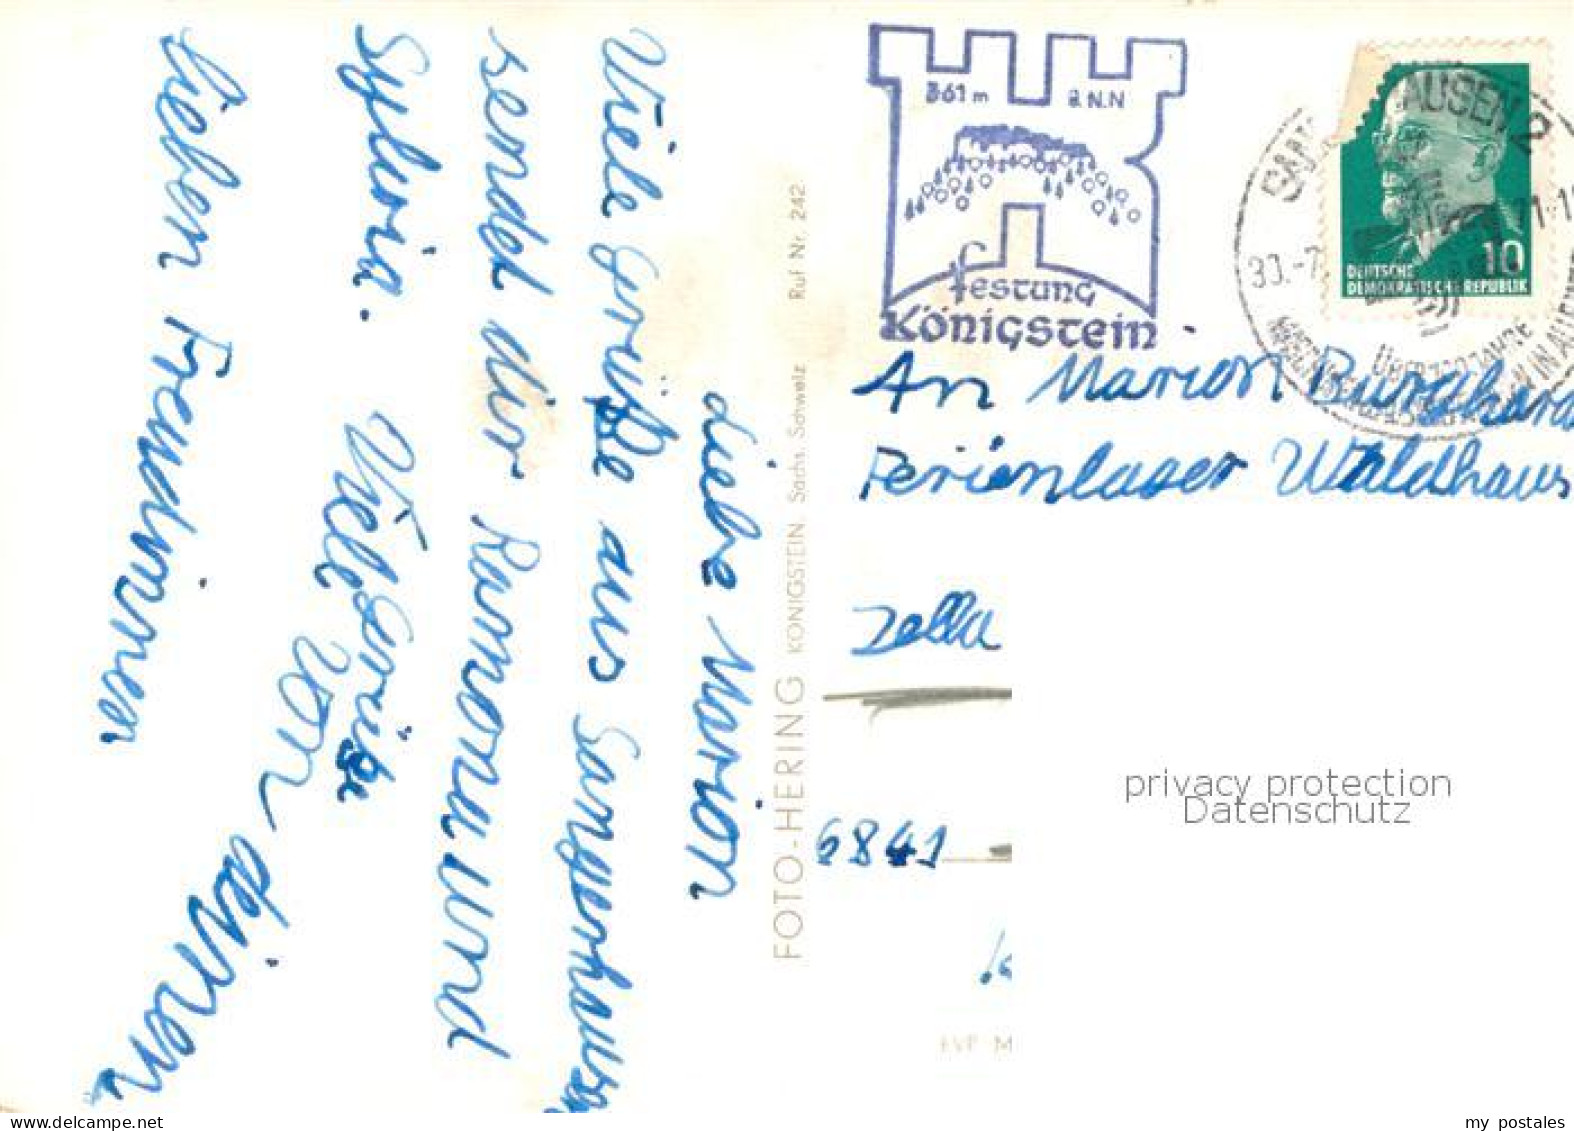 Liebe Marion
Viele Grüße aus Sangerhausen
sendet dir Ramona und
Sylvia. Viele Grüße
von deinen
lieben Freudinnen
FOTO-HERING KÖNIGSTEIN, Sächs. Schweiz Ruf Nr. 242
361 m ü. N.N
festung
Königstein
AUSEN 2
30.-7.
10
DEUTSCHE
DEMOKRATISCHE REPUBLIK
An Marion Burghard
Ferienlager Waldhaus
Zella
6841
EVP M
privacy protection
Datenschutz
www.delcampe.net
my_postales